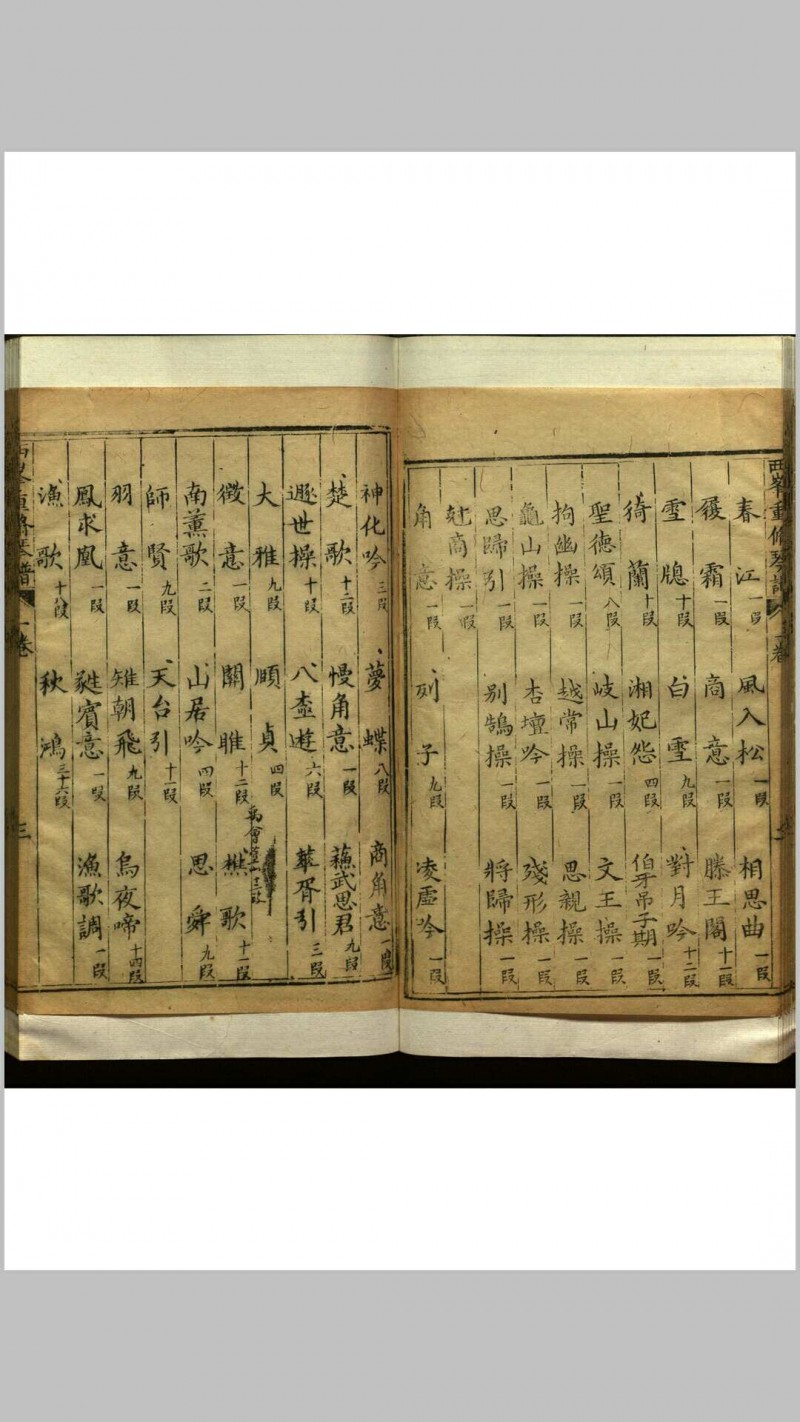 西峯重修琴譜 卷
春江一段 風入松一段 相思曲一段
履霜一段 商意一段 滕王閣十一段
雪牕十段 白雪九段 對月吟十二段
猗蘭十段 湘妃怨四段 伯牙吊子期一段
聖德頌八段 岐山操一段 文王操一段
拘幽操一段 越常操一段 思親操一段
龜山操一段 杏壇吟一段 殘形操一段
思歸引一段 别鵠操一段 將歸操一段
商操一段
角意一段 列子九段 凌虛吟一段
神化吟三段 夢蝶八段 商角意一段
楚歌十二段 慢角意一段 蘇武思君九段
遯世操十段 八極遊六段 華胥引三段
大雅九段 順貞四段
徵意一段 關雎十二段 樵歌十一段
南薰歌二段 山居吟四段 思舜九段
師賢九段 天台引十一段
羽意一段 雉朝飛九段 烏夜啼十四段
鳳求凰一段 蕤賓意一段 漁歌調一段
漁歌十段 秋鴻三十六段
重脩琴譜 一卷 三